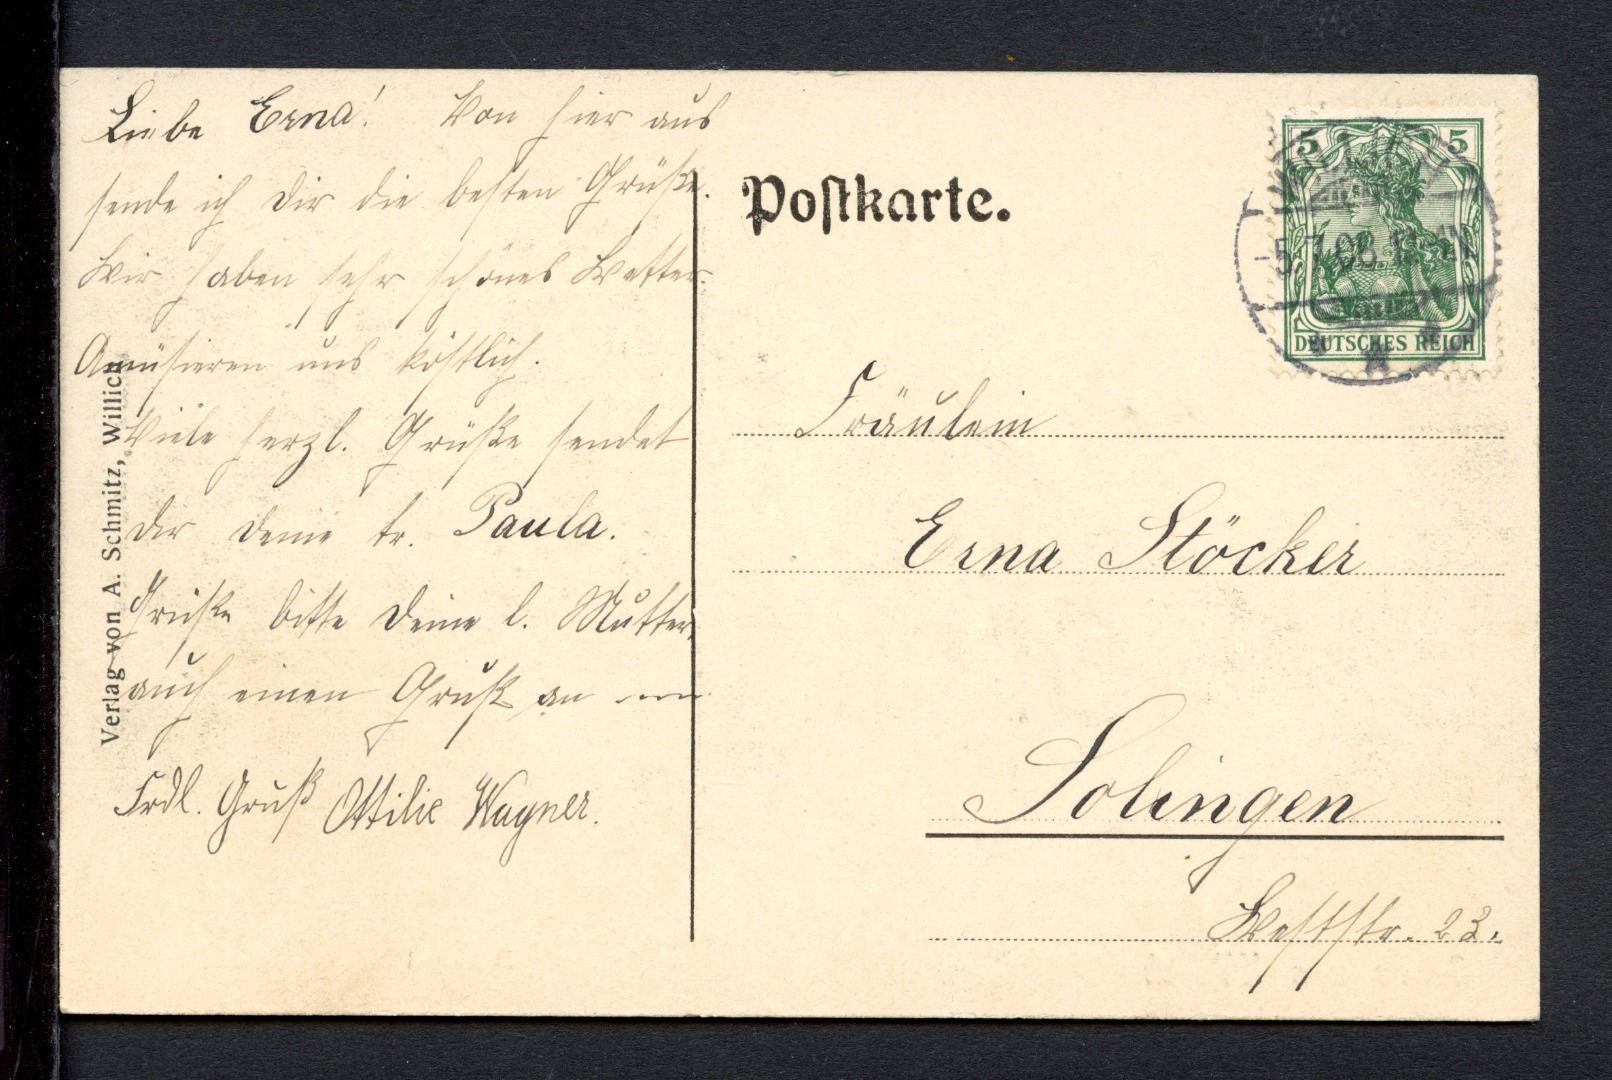 Liebe Erna! Von hier aus
sende ich Dir die besten Grüße.
Wir haben sehr schönes Wetter.
Amüsieren uns köstlich.
Viele herzl. Grüße sendet
Dir Deine tr. Paula.
Grüße bitte Deine l. Mutter,
auch einen Gruß an
Frdl. Gruß Ottilie Wagner.
Verlag von A. Schmitz, Willich
Postkarte.
5 5
DEUTSCHES REICH
Fräulein
Erna Stöcker
Solingen
Weststr. 23.